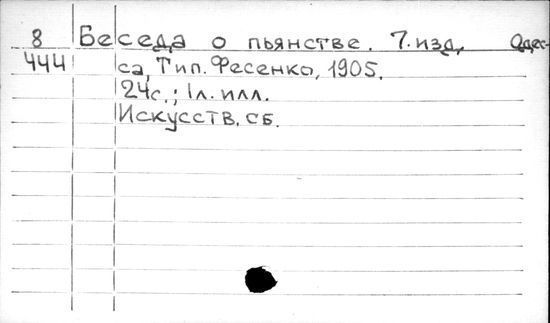 8 Беседа о пьянстве. 7. изд. Одес-
444 са, Тип. Фесенко, 1905.
24с.; 1л. илл.
Искусств. сб.